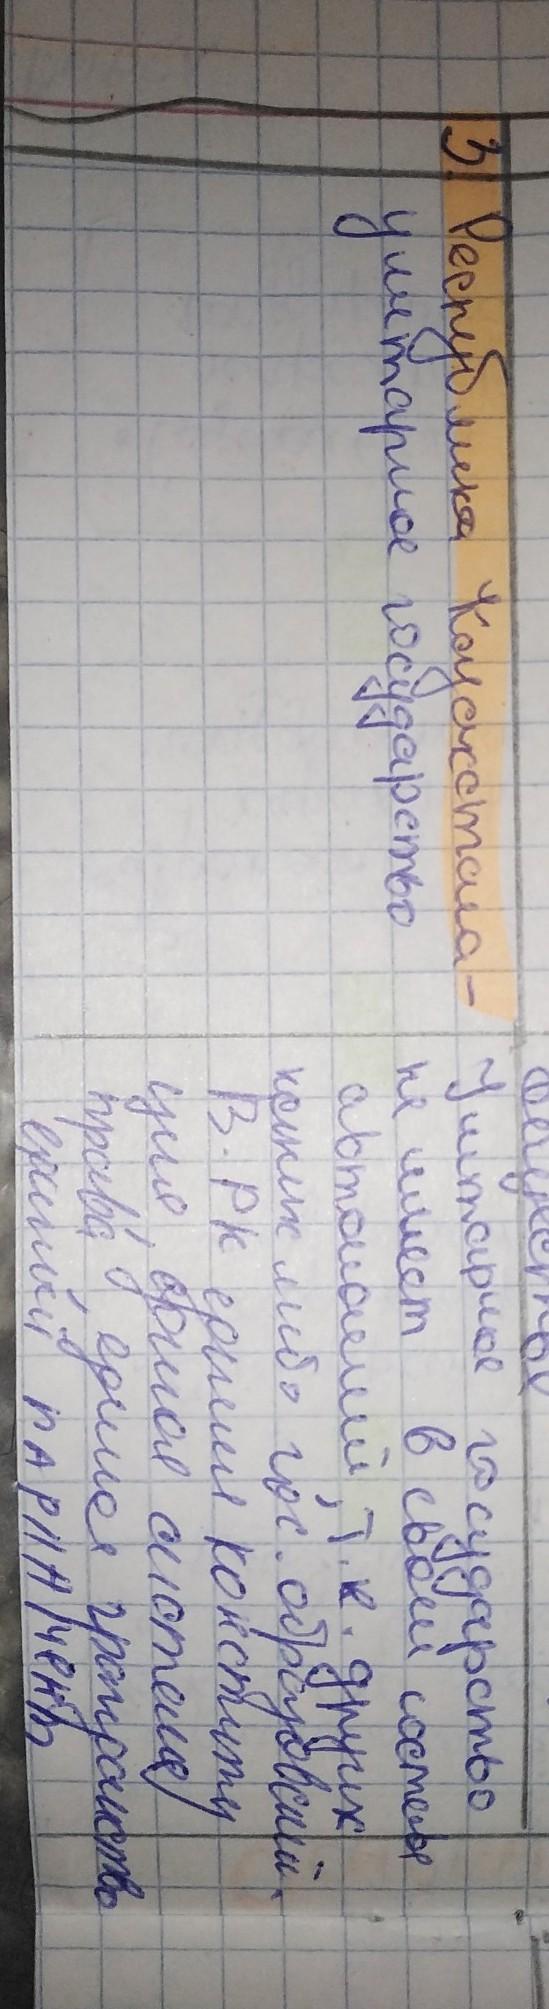 3. Республика Казахстана-
унитарное государство
Унитарное государство
не имеет в своём составе
автономий, т.к. других
каких либо гос. образований.
В. РК единая конститу
ция, единая система
права, единое гражданство
единый ПАРЛАМЕНТ